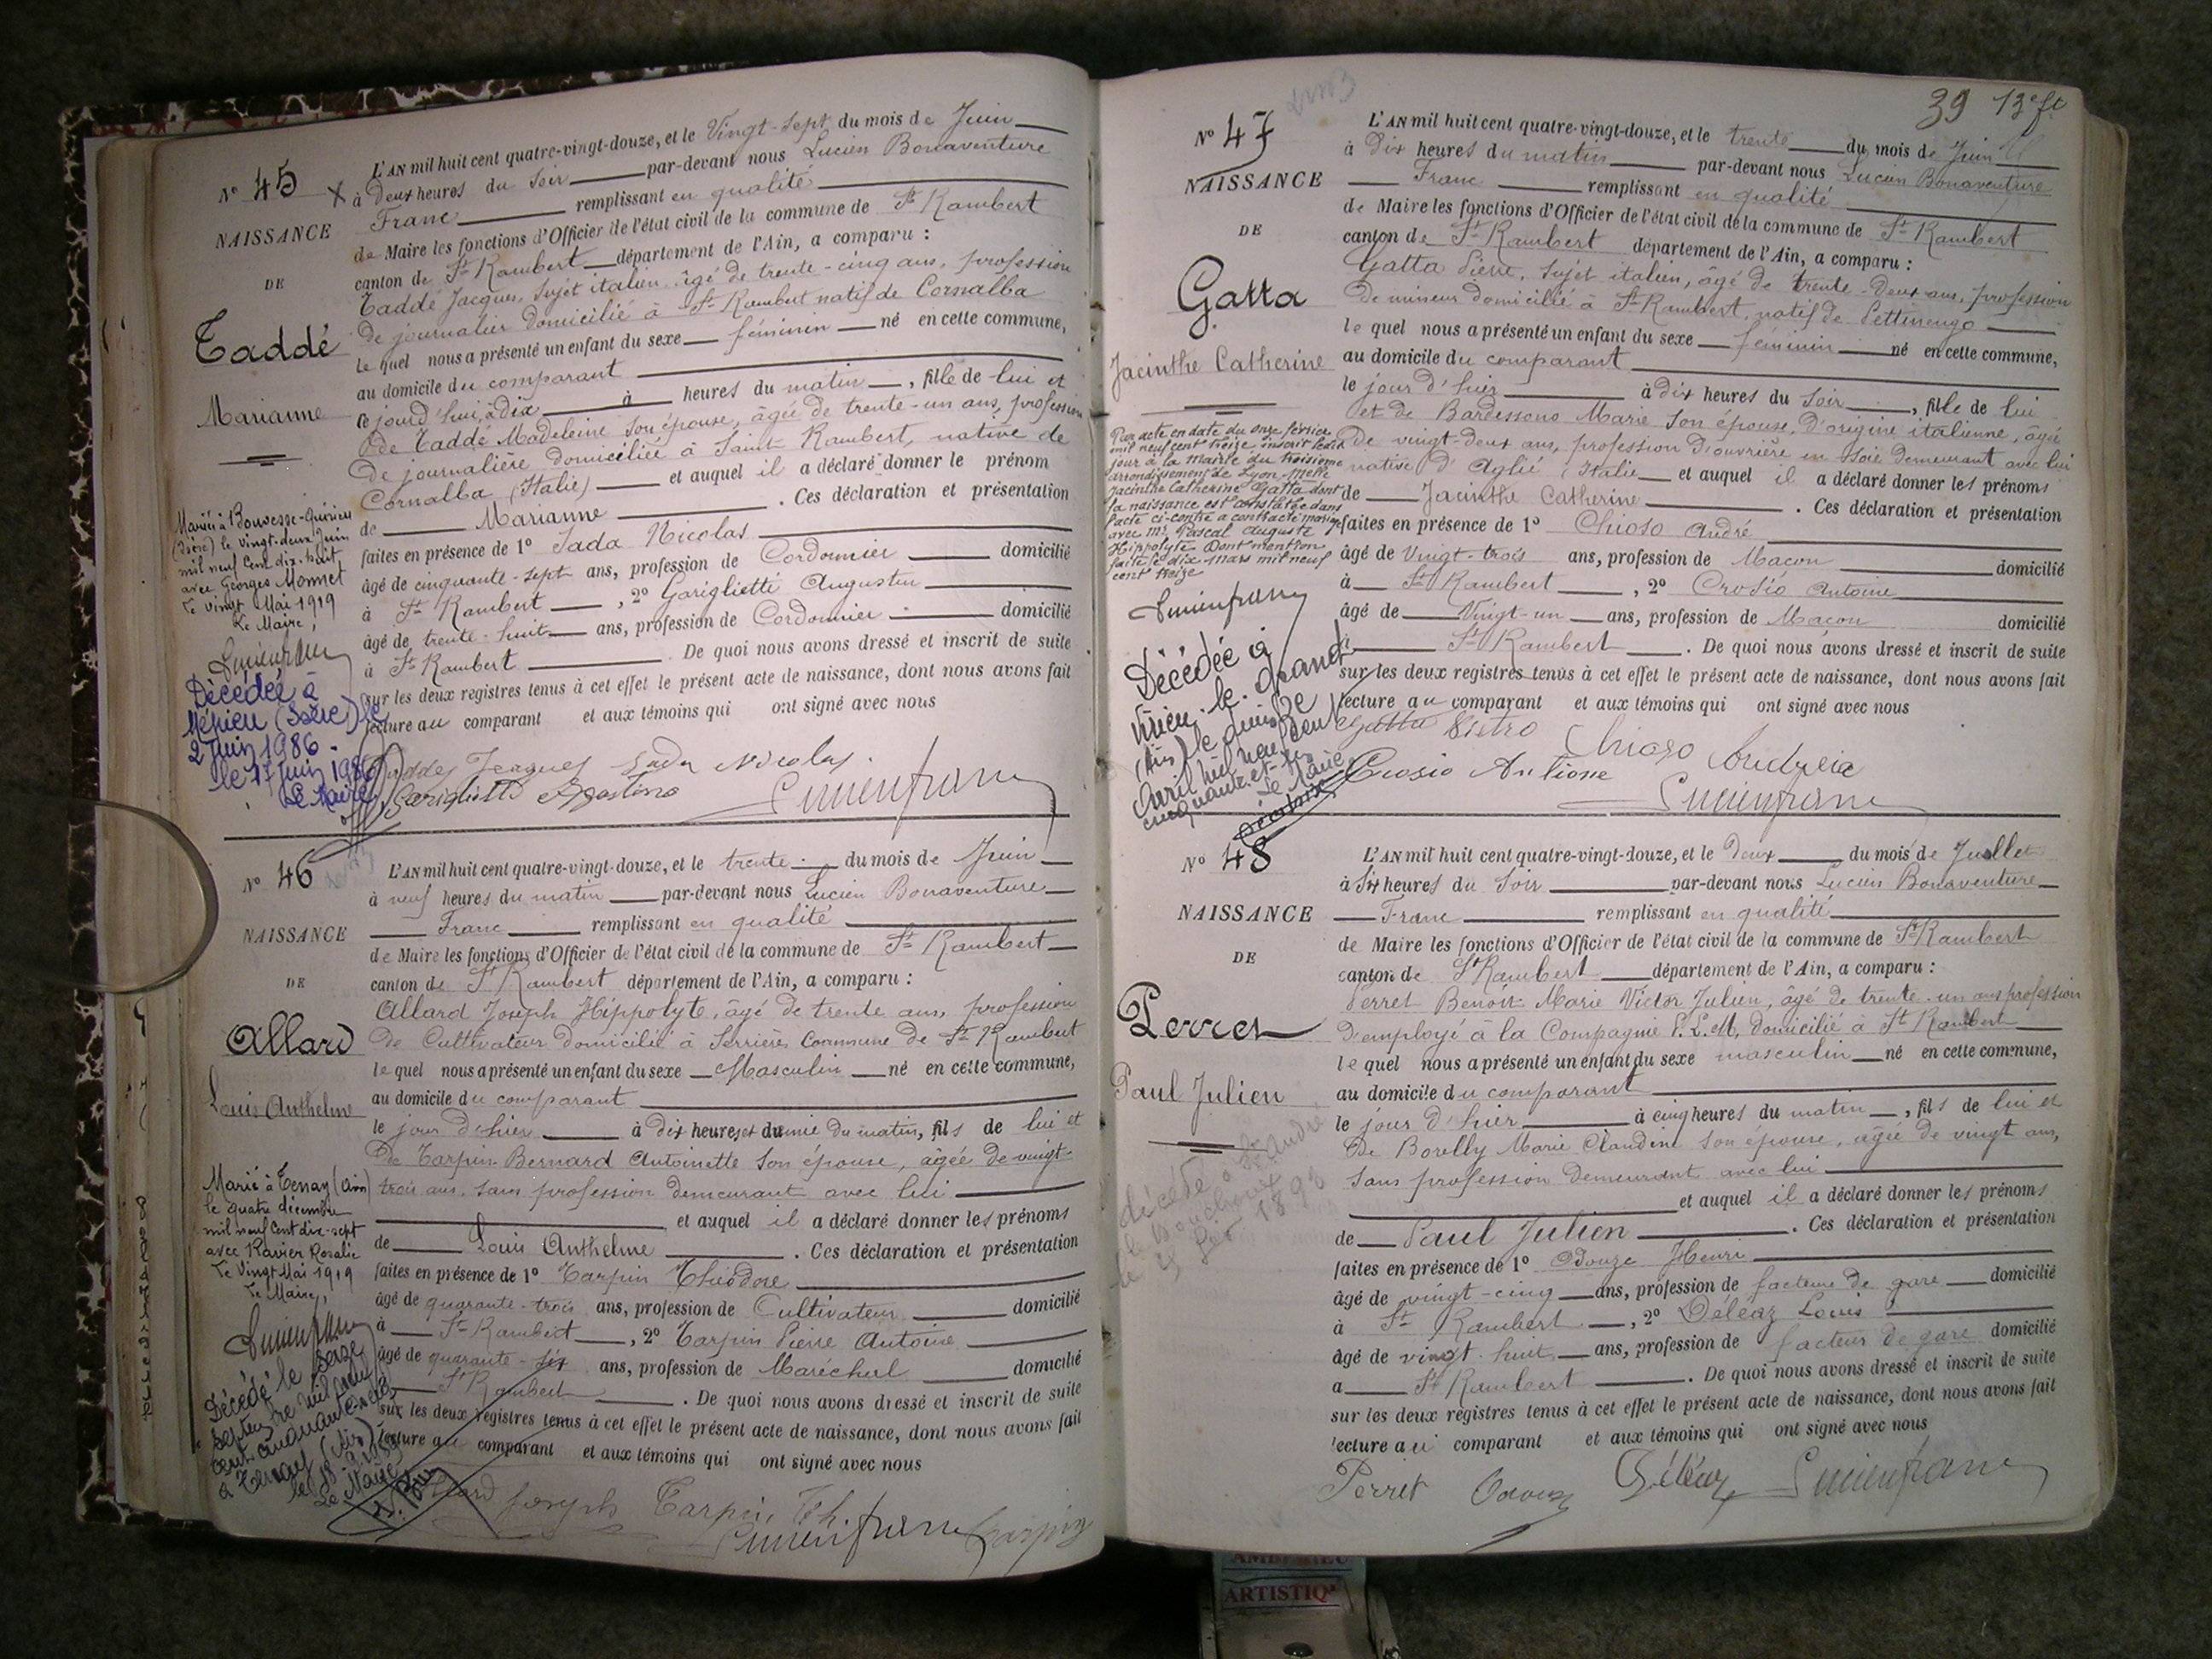 N° 45
NAISSANCE
DE
Taddé
Marianne
L'AN mil huit cent quatre-vingt-douze, et le Vingt-sept du mois de Juin
à Deux heures du soir par-devant nous Lucien Bonaventure
Franc remplissant en qualité
de Maire les fonctions d'Officier de l'état civil de la commune de St Rambert
canton de St Rambert département de l'Ain, a comparu :
Taddé Jacques, sujet italien âgé de trente-cinq ans, profession
de journalier domicilié à St Rambert natif de Cornalba
le quel nous a présenté un enfant du sexe féminin né en cette commune,
au domicile du comparant
ce jourd'hui, à dix à heures du matin, fille de lui et
de Taddé Madeleine son épouse, âgée de trente-un ans, profession
de journalière domiciliée à Saint Rambert, native de
Cornalba (Italie) et auquel il a déclaré donner le prénom
de Marianne . Ces déclaration et présentation
faites en présence de 1° Sada Nicolas
âgé de cinquante-sept ans, profession de Cordonnier domicilié
à St Rambert , 2° Garigliette Augustin
âgé de trente-huit ans, profession de Cordonnier domicilié
à St Rambert . De quoi nous avons dressé et inscrit de suite
sur les deux registres tenus à cet effet le présent acte de naissance, dont nous avons fait
lecture au comparant et aux témoins qui ont signé avec nous
Taddei Jacques Sada Nicolas
Garigliette Agostino Lucien franc
Mariée à Bouvesse-Quirieu
(Isère) le vingt-deux Juin
mil neuf cent dix-huit
avec Georges Monnet
Le vingt Mai 1919
Le Maire,
Lucien franc
Décédée à
Mépieu (Isère) le
2 Juin 1986.
le 17 Juin 1986
Le Maire
N° 46
NAISSANCE
DE
Allard
Louis Anthelme
L'AN mil huit cent quatre-vingt-douze, et le trente du mois de Juin
à neuf heures du matin par-devant nous Lucien Bonaventure
Franc remplissant en qualité
de Maire les fonctions d'Officier de l'état civil de la commune de St Rambert
canton de St Rambert département de l'Ain, a comparu :
Allard Joseph Hippolyte, âgé de trente ans, profession
de Cultivateur domicilié à Serrières commune de St Rambert
le quel nous a présenté un enfant du sexe Masculin né en cette commune,
au domicile du comparant
le jour d'hier à dix heures et demie du matin, fils de lui et
de Tarpin Bernard Antoinette son épouse, âgée de vingt-
trois ans, sans profession demeurant avec lui
et auquel il a déclaré donner les prénoms
de Louis Anthelme . Ces déclaration et présentation
faites en présence de 1° Tarpin Théodore
âgé de quarante-trois ans, profession de Cultivateur domicilié
à St Rambert , 2° Tarpin Pierre Antoine
âgé de quarante-six ans, profession de Maréchal domicilié
St Rambert . De quoi nous avons dressé et inscrit de suite
sur les deux registres tenus à cet effet le présent acte de naissance, dont nous avons fait
lecture au comparant et aux témoins qui ont signé avec nous
Allard Joseph Tarpin Th.
Lucien franc Tarpin
Marié à Tenay (Ain)
le quatre décembre
mil neuf cent dix-sept
avec Ravier Rosalie
Le Vingt Mai 1919
Le Maire,
Lucien franc
Décédé le seize
septembre mil neuf
cent cinquante-neuf
à Tenay (Ain)
le 18.9.1959
Le Maire
39 13e ft
N° 47
NAISSANCE
DE
Gatta
Jacinthe Catherine
L'AN mil huit cent quatre-vingt-douze, et le trente du mois de Juin
à Dix heures du matin par-devant nous Lucien Bonaventure
Franc remplissant en qualité
de Maire les fonctions d'Officier de l'état civil de la commune de St Rambert
canton de St Rambert département de l'Ain, a comparu :
Gatta Pierre, sujet italien, âgé de trente-deux ans, profession
de mineur domicilié à St Rambert, natif de Pettinengo
le quel nous a présenté un enfant du sexe féminin né en cette commune,
au domicile du comparant
le jour d'hier à dix heures du soir , fille de lui
et de Bardessono Marie son épouse, d'origine italienne, âgée
de vingt-deux ans, profession d'ouvrière en soie demeurant avec lui
native d'Aglié Italie et auquel il a déclaré donner les prénoms
de Jacinthe Catherine . Ces déclaration et présentation
faites en présence de 1° Chioso André
âgé de Vingt-trois ans, profession de Maçon domicilié
à St Rambert , 2° Crosio Antoine
âgé de Vingt-un ans, profession de Maçon domicilié
à St Rambert . De quoi nous avons dressé et inscrit de suite
sur les deux registres tenus à cet effet le présent acte de naissance, dont nous avons fait
lecture au comparant et aux témoins qui ont signé avec nous
Gatta Pietro Chioso Andreia
Crosio Antione
Lucien franc
Par acte en date du onze février
mil neuf cent treize inscrit le dit
jour à la Mairie du troisième
arrondissement de Lyon Melle
Jacinthe Catherine Gatta dont
la naissance est constatée dans
l'acte ci-contre a contracté mariage
avec Mr Pascal Auguste
Hippolyte Dont mention
faite le dix mars mil neuf
cent treize
Lucien franc
Décédée à
Virieu-le-Grand
(Ain) le quinze
Avril mil neuf cent
cinquante-et-un
Le Maire
N° 48
NAISSANCE
DE
Perret
Paul Julien
L'AN mil huit cent quatre-vingt-douze, et le deux du mois de Juillet
à Six heures du Soir par-devant nous Lucien Bonaventure
Franc remplissant en qualité
de Maire les fonctions d'Officier de l'état civil de la commune de St Rambert
canton de St Rambert département de l'Ain, a comparu :
Perret Benoit Marie Victor Julien, âgé de trente-un ans profession
d'employé à la Compagnie P.L.M, domicilié à St Rambert
le quel nous a présenté un enfant du sexe masculin né en cette commune,
au domicile du comparant
le jour d'hier à cinq heures du matin , fils de lui et
de Borelly Marie Claudine son épouse, âgée de vingt ans,
sans profession demeurant avec lui
et auquel il a déclaré donner les prénoms
de Paul Julien . Ces déclaration et présentation
faites en présence de 1° Douze Henri
âgé de vingt-cinq ans, profession de facteur de gare domicilié
à St Rambert , 2° Déléaz Louis
âgé de vingt-huit ans, profession de facteur de gare domicilié
a St Rambert . De quoi nous avons dressé et inscrit de suite
sur les deux registres tenus à cet effet le présent acte de naissance, dont nous avons fait
lecture au comparant et aux témoins qui ont signé avec nous
Perret Déléaz Lucien franc
décédé à St André
le Bouchoux
1893
AMBERIEU
ARTISTIQ